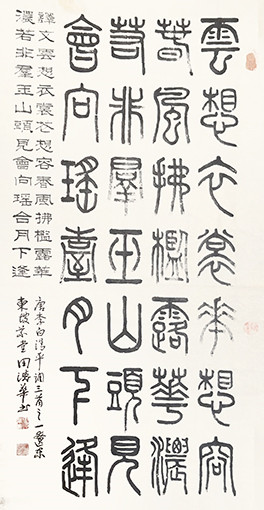 雲想衣裳華想容
春風拂檻露華濃
若非羣玉山頭見
會向瑤臺月下逢
釋文雲想衣裳花想容春風拂檻露華
濃若非羣玉山頭見會向瑤台月下逢
唐李白清平調三首之一